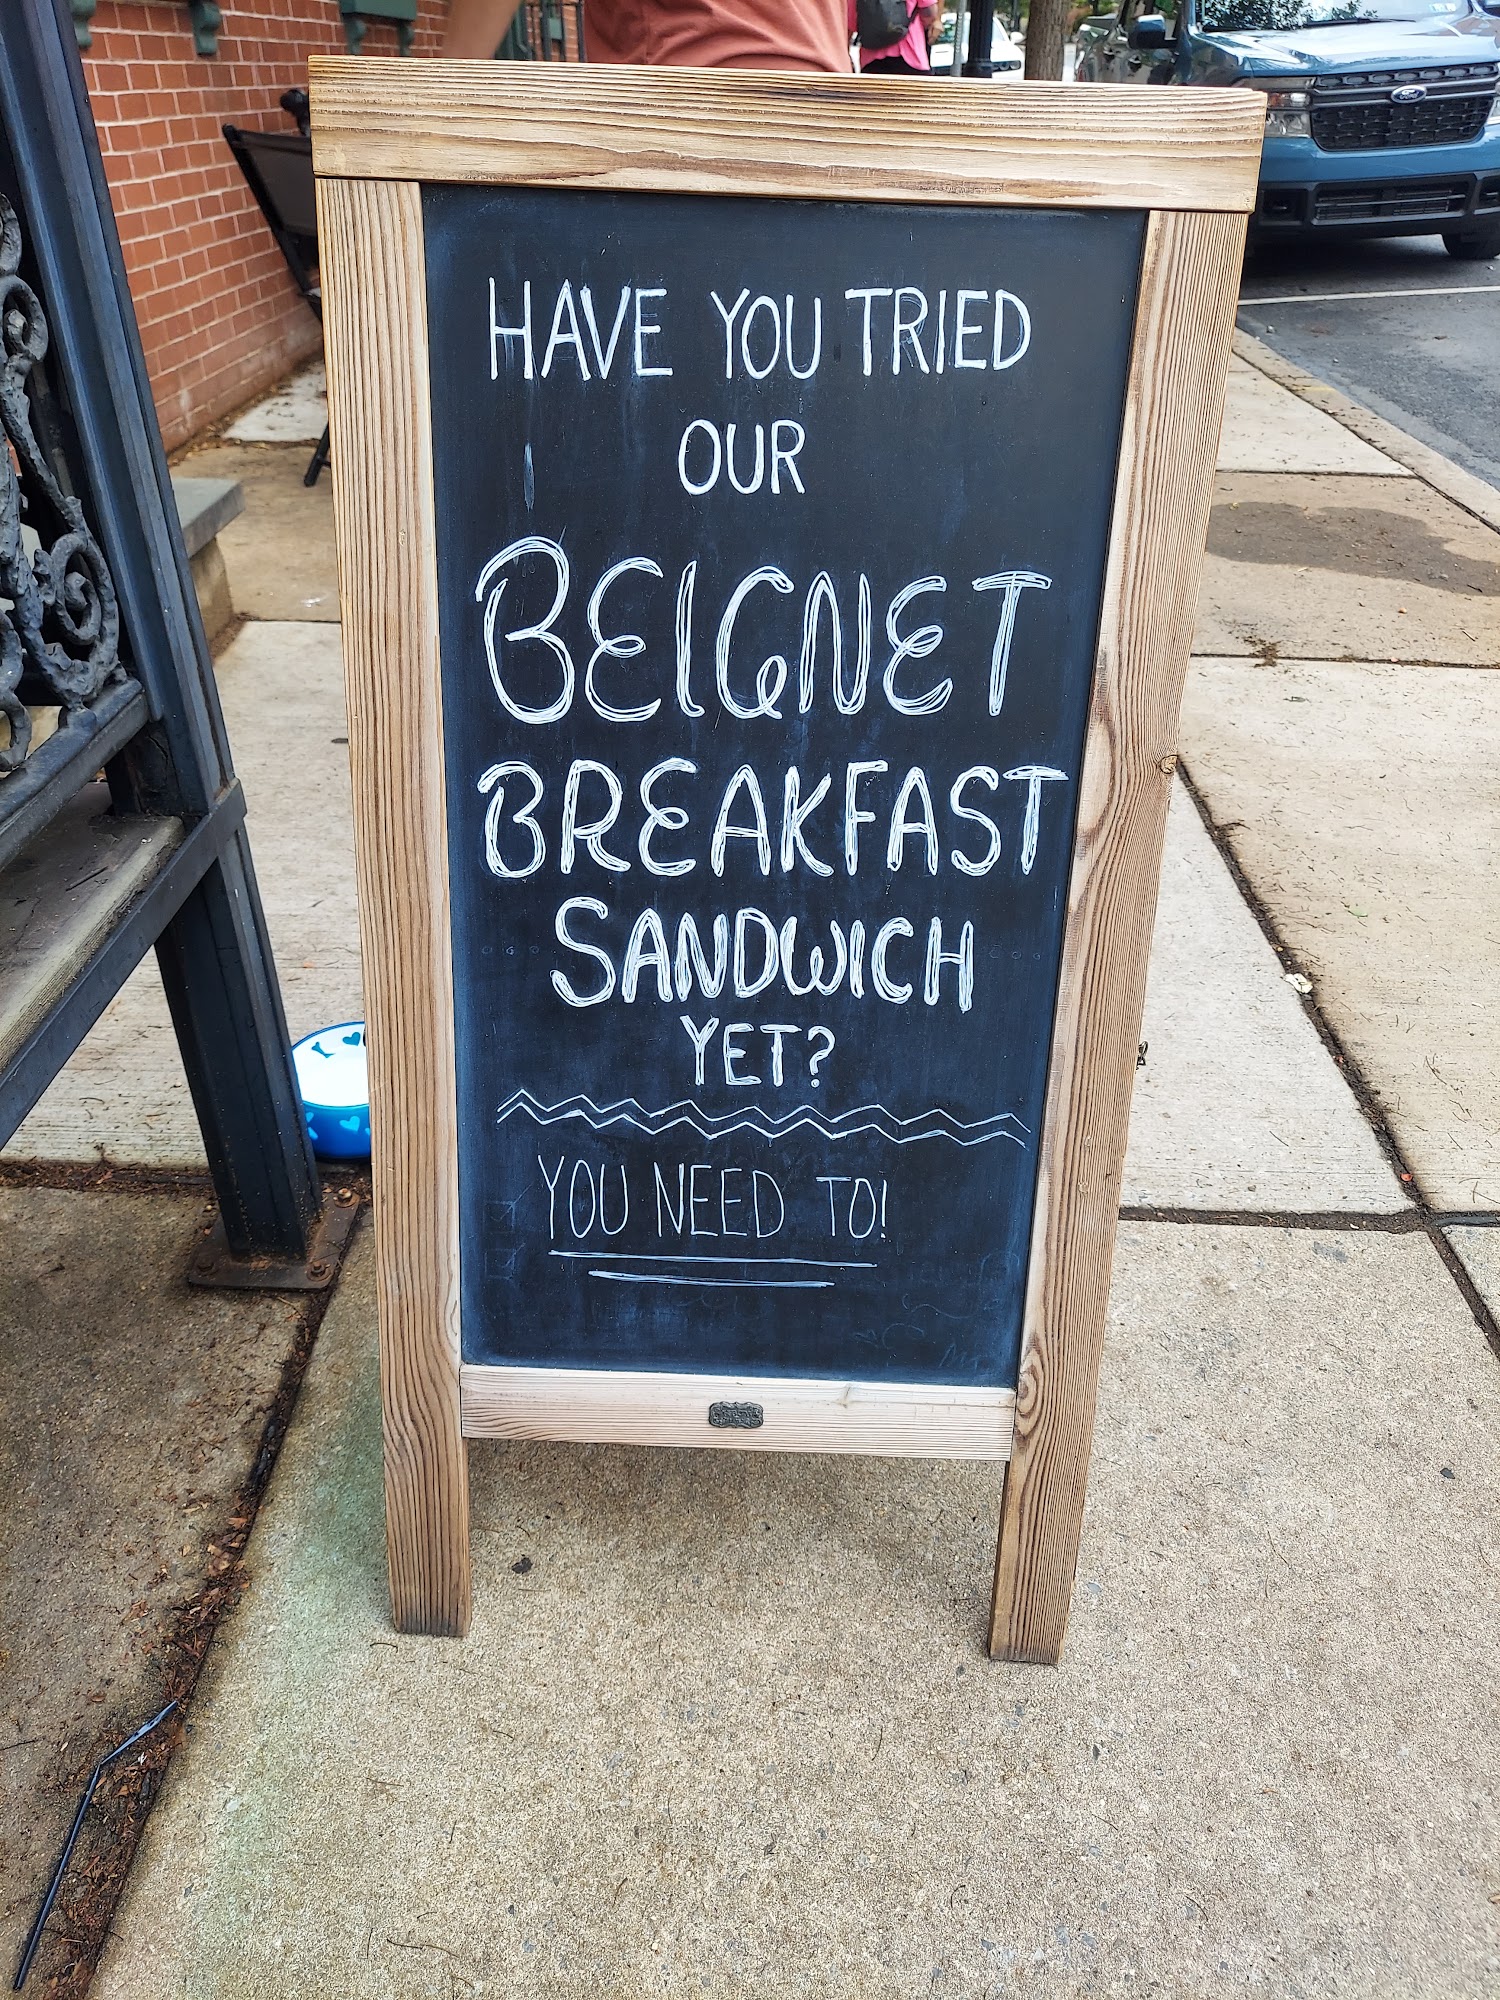 HAVE YOU TRIED
OUR
BEIGNET
BREAKFAST
SANDWICH
YET?
YOU NEED TO!
Ford